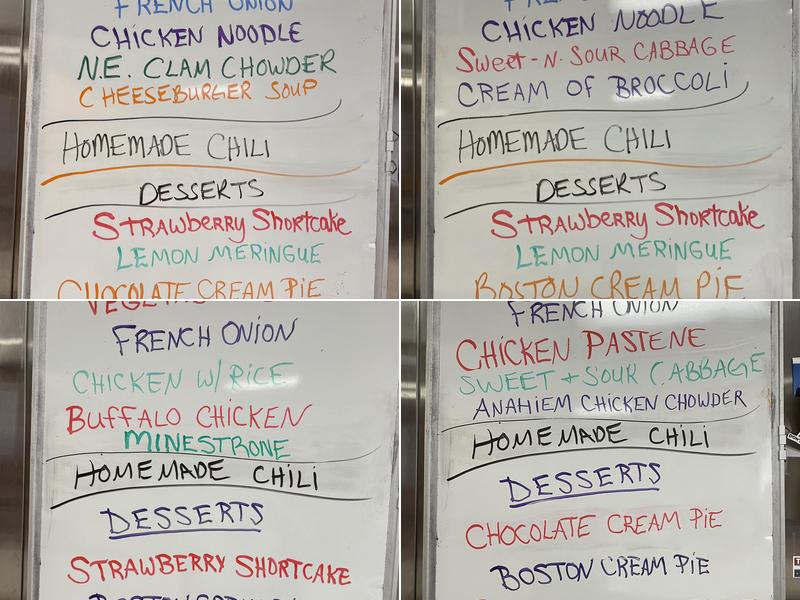 FRENCH ONION
CHICKEN NOODLE
N.E. CLAM CHOWDER
CHEESEBURGER SOUP
HOMEMADE CHILI
DESSERTS
STRAWBERRY SHORTCAKE
LEMON MERINGUE
CHOCOLATE CREAM PIE
CHICKEN NOODLE
SWEET-N-SOUR CABBAGE
CREAM OF BROCCOLI
HOMEMADE CHILI
DESSERTS
STRAWBERRY SHORTCAKE
LEMON MERINGUE
BOSTON CREAM PIE
FRENCH ONION
CHICKEN W/ RICE
BUFFALO CHICKEN
MINESTRONE
HOMEMADE CHILI
DESSERTS
STRAWBERRY SHORTCAKE
FRENCH ONION
CHICKEN PASTENE
SWEET + SOUR CABBAGE
ANAHIEM CHICKEN CHOWDER
HOMEMADE CHILI
DESSERTS
CHOCOLATE CREAM PIE
BOSTON CREAM PIE